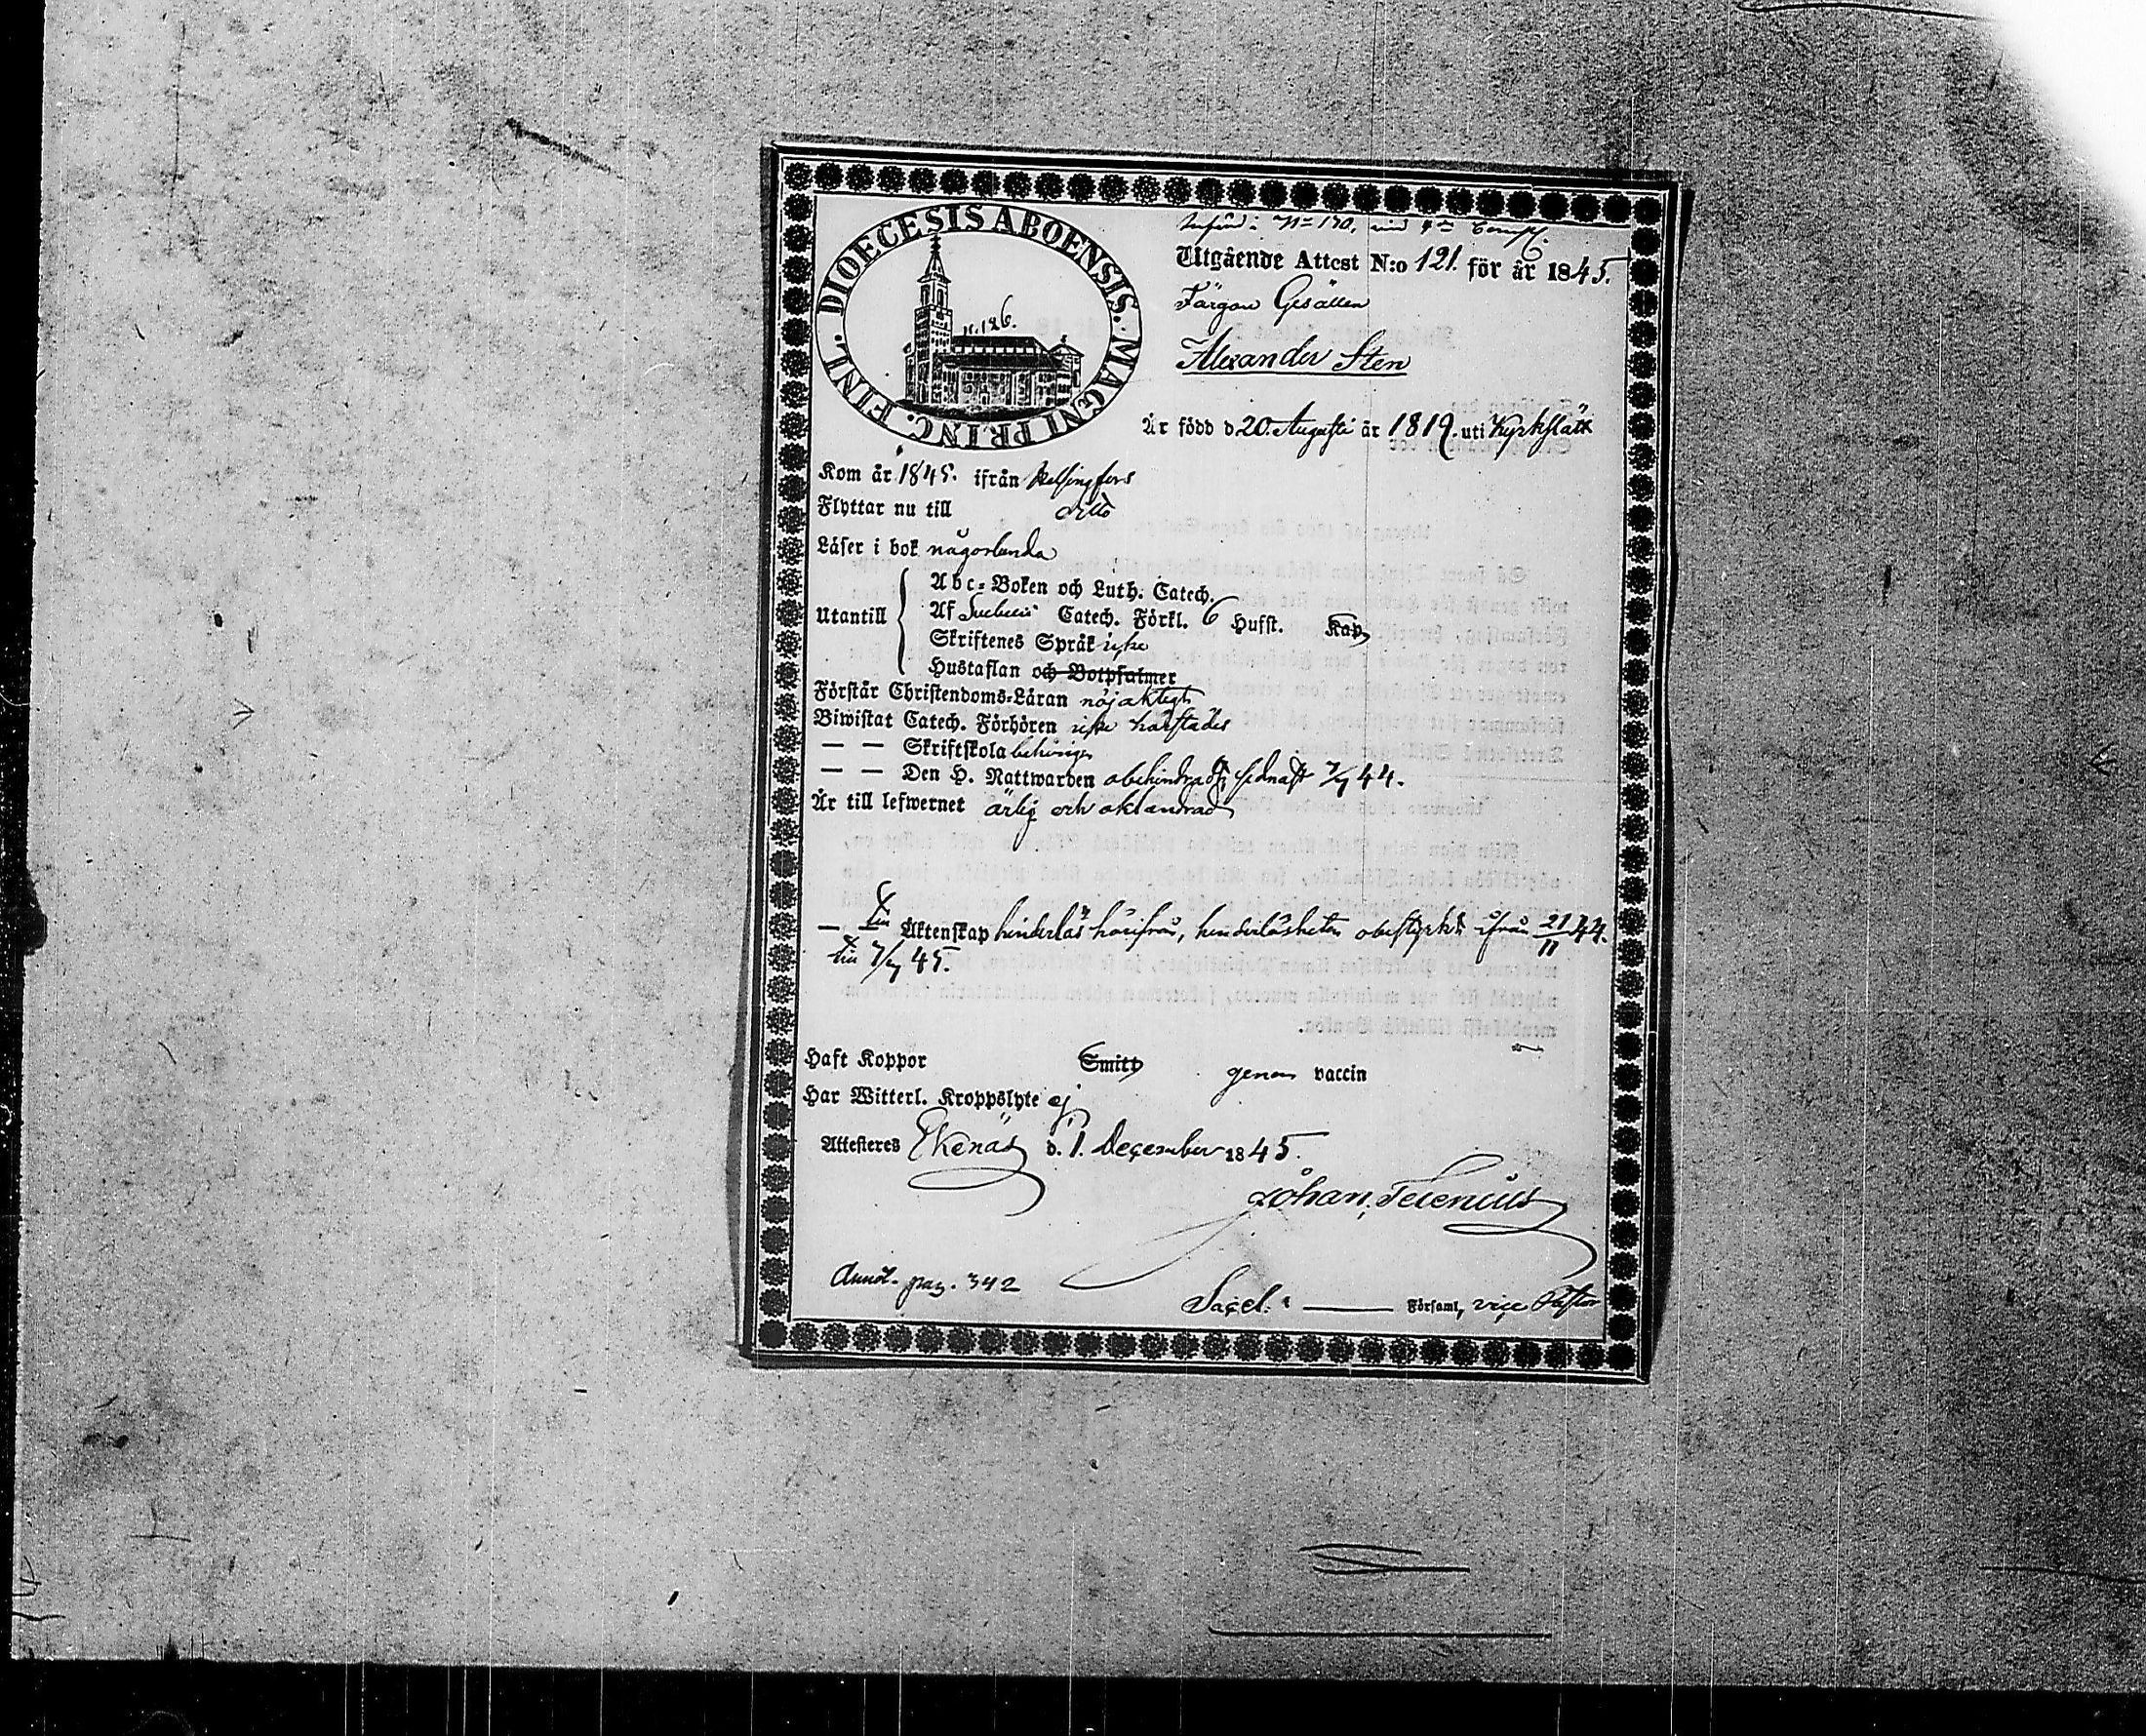 DIOECESIS ABOENSIS. MAGNI PRINC. FINL.
n. 126.
N:o 170,
Utgående Attest N:o 121. för år 1845.
Färgare Gesällen
Alexander Sten
Är född d 20. Augusti år 1819. uti Kyrkslätt
Kom år 1845. ifrån Helsingfors
Flyttar nu till ditto
Läser i bok någorlunda
Utantill
Abc-Boken och Luth. Catech.
Af Catech. Förkl. 6 Hufst. Kap
Skriftenes Språk icke
Hustaflan och Botpsalmer
Förstår Christendoms-Läran nöjaktigt
Biwistat Catech. Förhören icke härstädes
— — Skriftskola behörigen
— — Den H. Nattwarden obehindrad, sednast 7/9 44.
Är till lefwernet ärlig och oklandrad
— — till Äktenskap hinderlös härifrån, hinderlösheten obestyrkt ifrån 21/11 44.
till 7/9 45.
Haft Koppor Smitt genom vaccin
Har Witterl. Kroppslyte ej
Attesteras Ekenäs d. 1. December 1845.
Johan Telenius
Annot. pag. 342
Sacel. Församl. vice Pastor